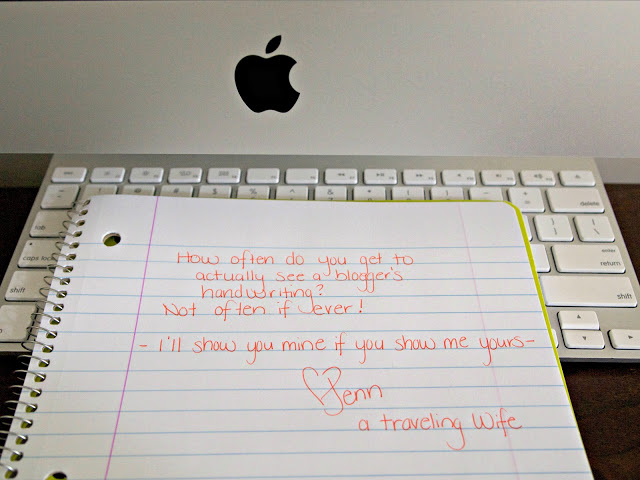 delete
tab
caps lock
enter
return
shift
shift
How often do you get to
actually see a blogger's
handwriting?
Not often if ever!
- I'll show you mine if you show me yours-
Jenn
a traveling Wife